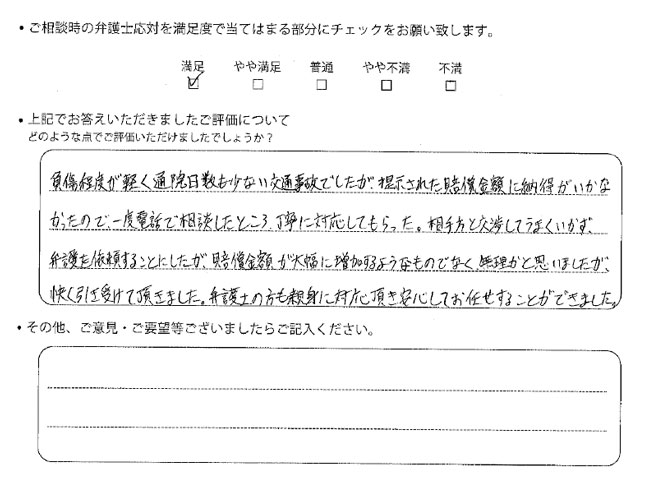 ・ご相談時の弁護士応対を満足度で当てはまる部分にチェックをお願い致します。
満足 やや満足 普通 やや不満 不満
☑ □ □ □ □
・上記でお答えいただきましたご評価について
どのような点でご評価いただけましたでしょうか？
負傷程度が軽く通院日数も少ない交通事故でしたが、提示された賠償金額に納得がいかな
かったので、一度電話で相談したところ、丁寧に対応してもらった。相手方と交渉してうまくいかず、
弁護を依頼することにしたが、賠償金額が大幅に増加するようなものでなく、無理かと思いましたが、
快く引き受けて頂きました。弁護士の方も親身に対応頂き安心してお任せすることができました。
・その他、ご意見・ご要望等ございましたらご記入ください。